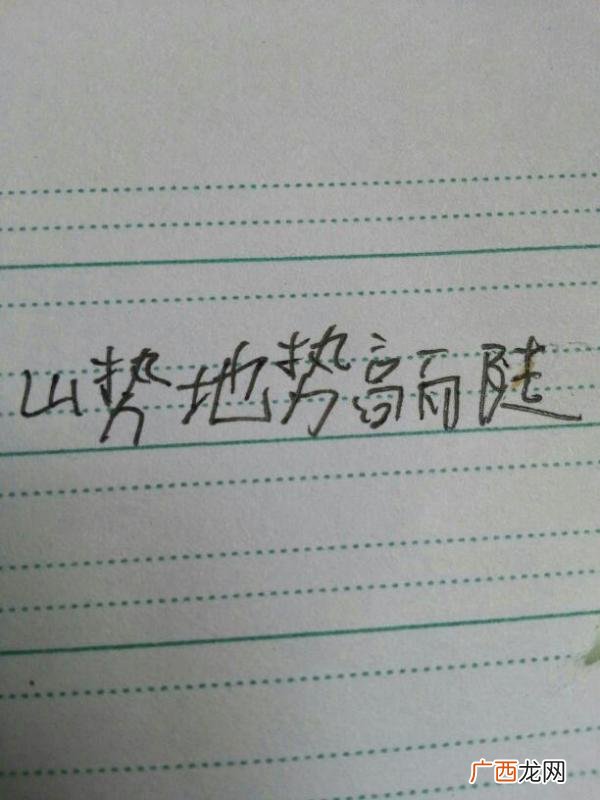 山势地势高而陡
广西龙网